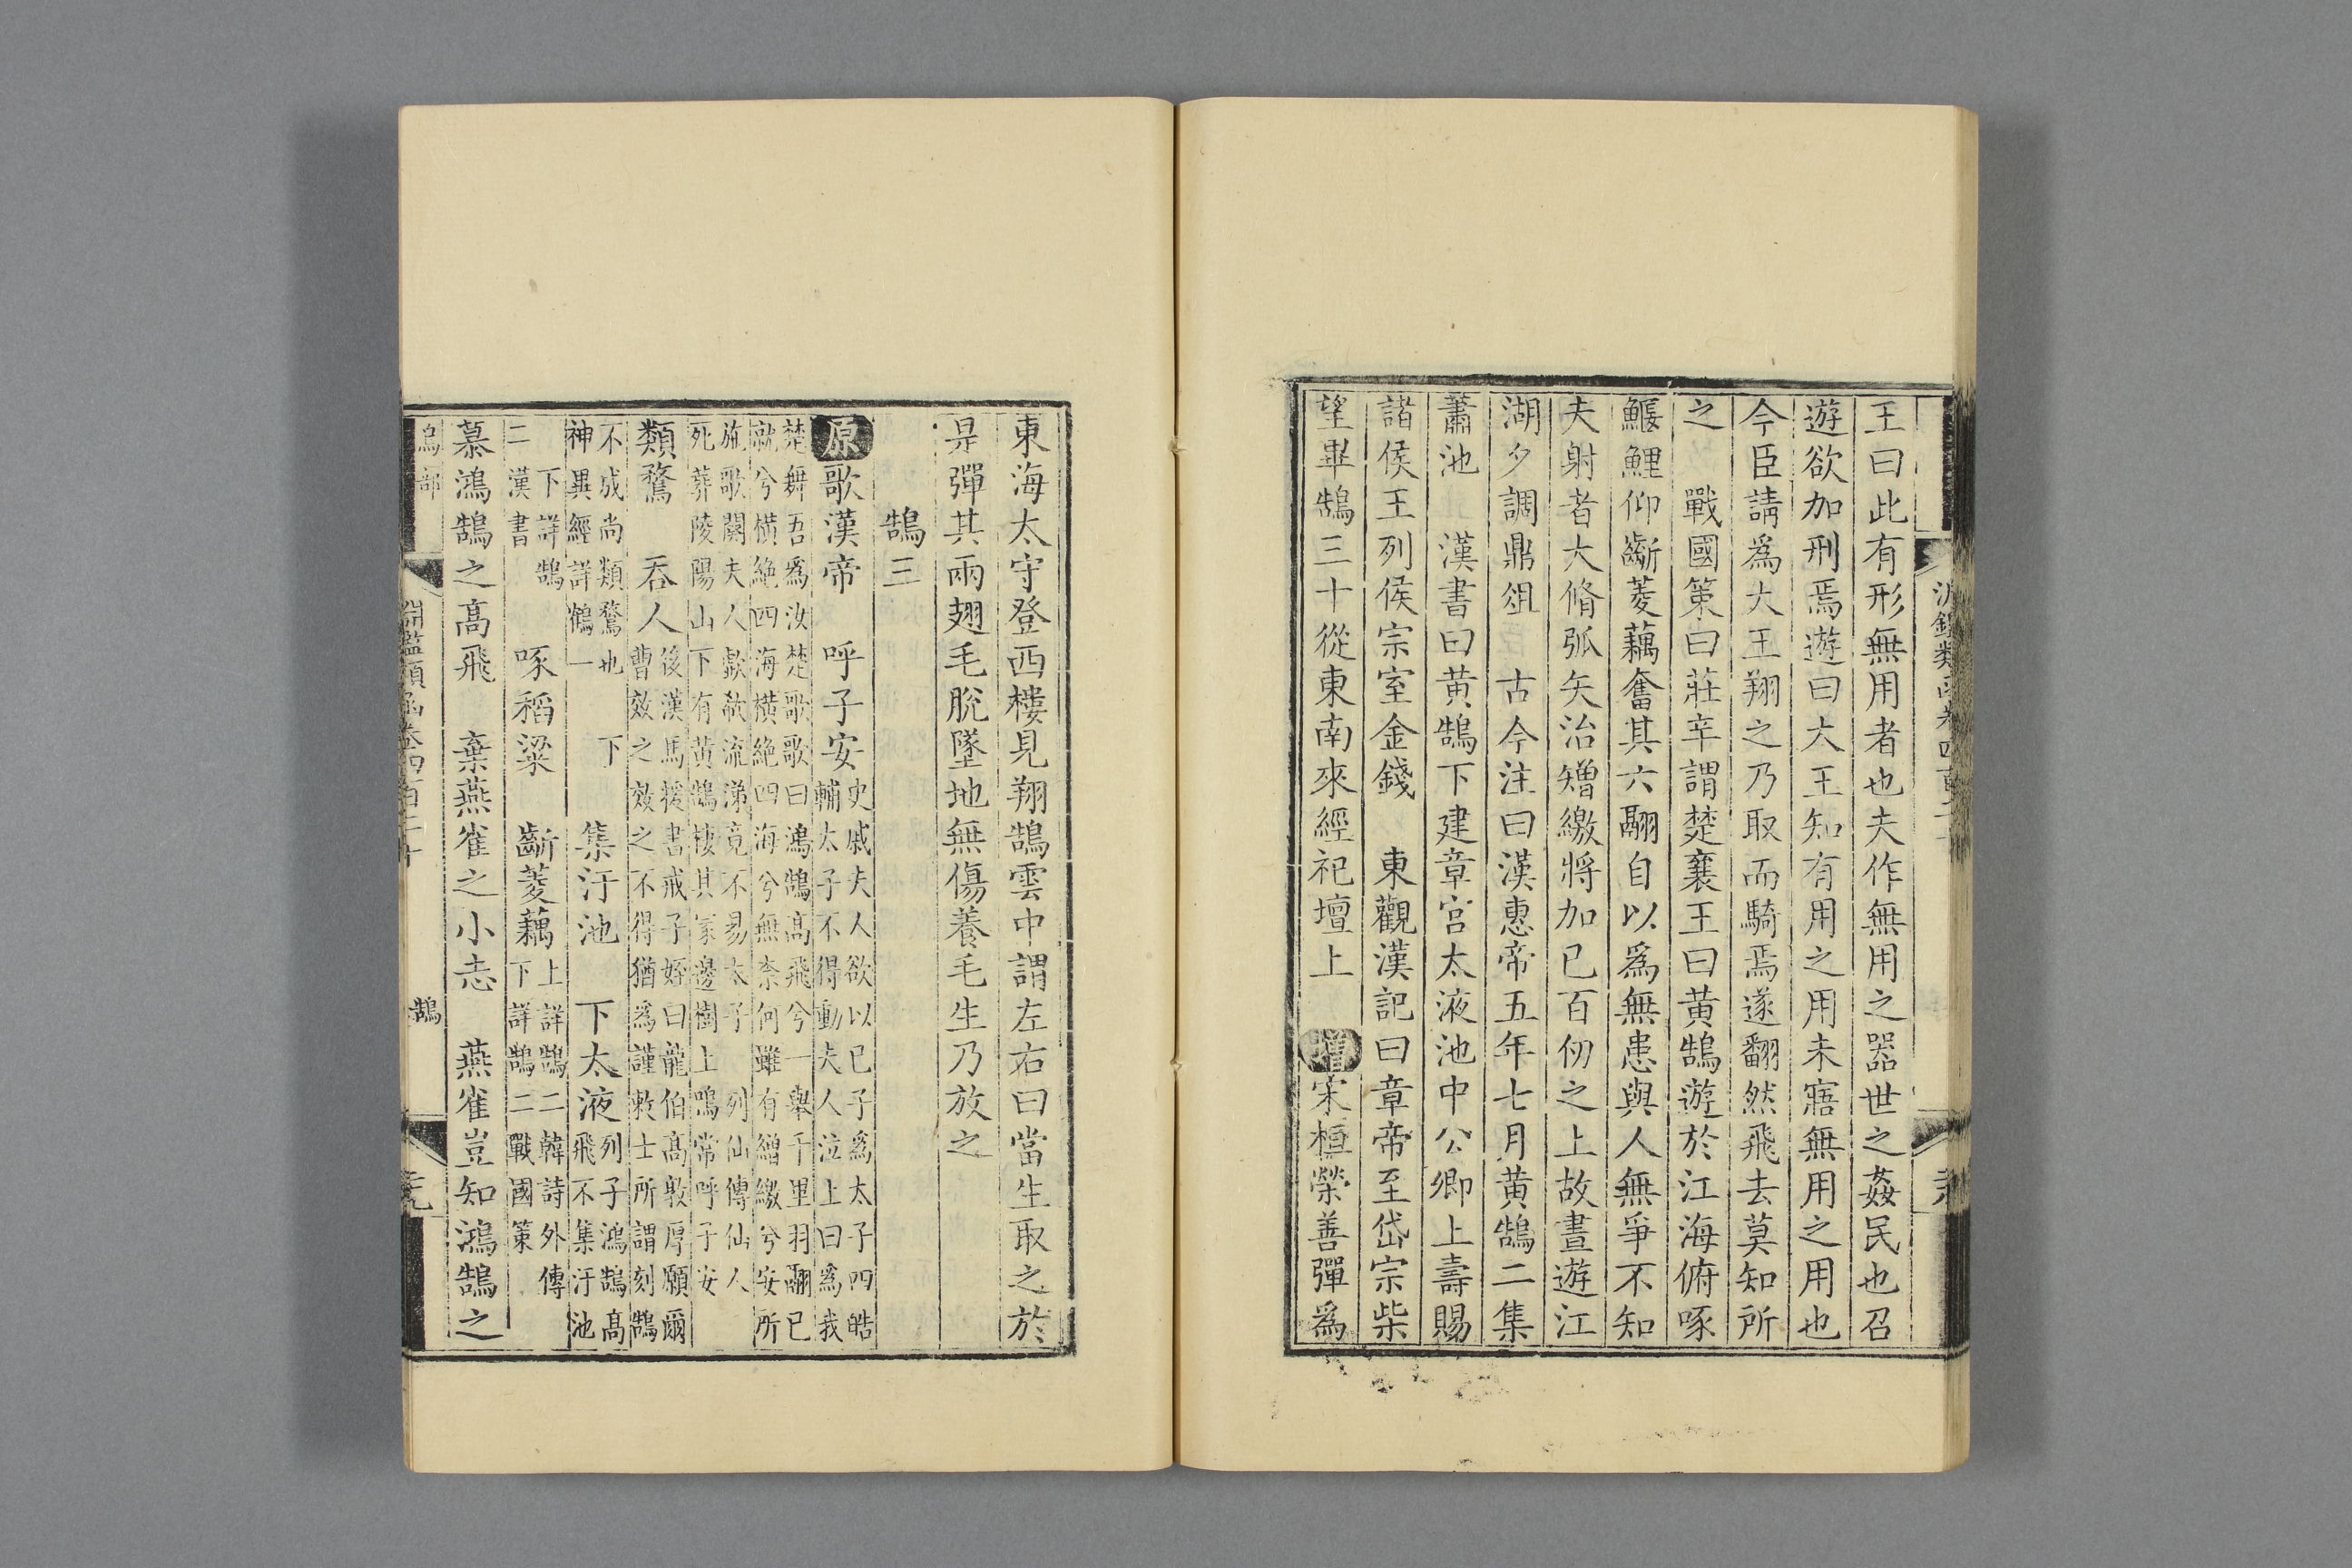 王曰此有形無用者也夫作無用之器世之姦民也召
遊欲加刑焉遊曰大王知有用之用未寤無用之用也
今臣請爲大王翔之乃取而騎焉遂翻然飛去莫知所
之　戰國策曰莊辛謂楚襄王曰黄鵠遊於江海俯啄
鰋鯉仰齗菱藕奮其六翮自以爲無患與人無爭不知
夫射者大脩弧矢治矰繳將加已百仞之上故晝遊江
湖夕調鼎俎　古今注曰漢惠帝五年七月黄鵠二集
蕭池　漢書曰黄鵠下建章宫太液池中公卿上壽賜
諸侯王列侯宗室金錢　東觀漢記曰章帝至岱宗柴
望畢鵠三十從東南來經祀壇上　增宋桓榮善彈爲
東海太守登西樓見翔鵠雲中謂左右曰當生取之於
是彈其兩翅毛脫墜地無傷養毛生乃放之
鵠三
原歌漢帝　呼子安史戚夫人欲以已子爲太子四皓
輔太子不得動夫人泣上曰爲我
楚舞吾爲汝楚歌歌曰鴻鵠高飛兮一舉千里羽翮已
就兮橫絶四海橫絶四海兮無柰何雖有繒繳兮安所
施歌闋夫人歔欷流涕竟不易太子　列仙傳仙人
死葬陵陽山下有黄鵠棲其冢邊樹上鳴常呼子安
類鶩　吞人後漢馬援書戒子姪曰龍伯高敦厚願爾
曹效之效之不得猶爲謹敕士所謂刻鵠
不成尚類鶩也　下
神異經詳鶴一　集汙池　下太液列子鴻鵠高
飛不集汙池
下詳鵠
二漢書　啄稻粱　齗菱藕上詳鵠二韓詩外傳
下詳鵠二戰國策
慕鴻鵠之高飛　棄燕雀之小志　燕雀豈知鴻鵠之
鳥部　淵鑑類函卷四百二十　鵠